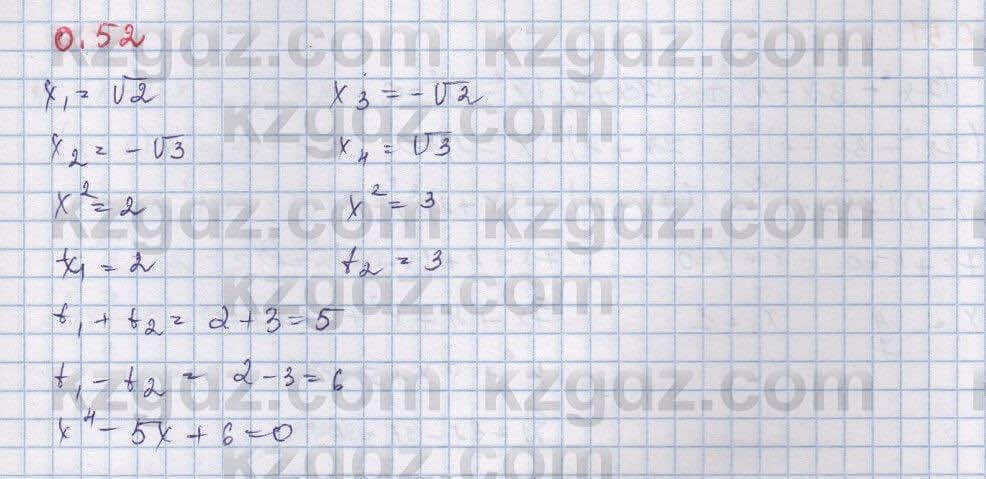 0.52
x₁ = √2 x₃ = -√2
x₂ = -√3 x₄ = √3
x² = 2 x² = 3
t₁ = 2 t₂ = 3
t₁ + t₂ = 2 + 3 = 5
t₁ - t₂ = 2 - 3 = 6
x⁴ - 5x + 6 = 0
kzgdz.com kzgdz.com
kzgdz.com
kzgdz.com kzgdz.com
kzgdz.com
kzgdz.com kzgdz.com
kzgdz.com